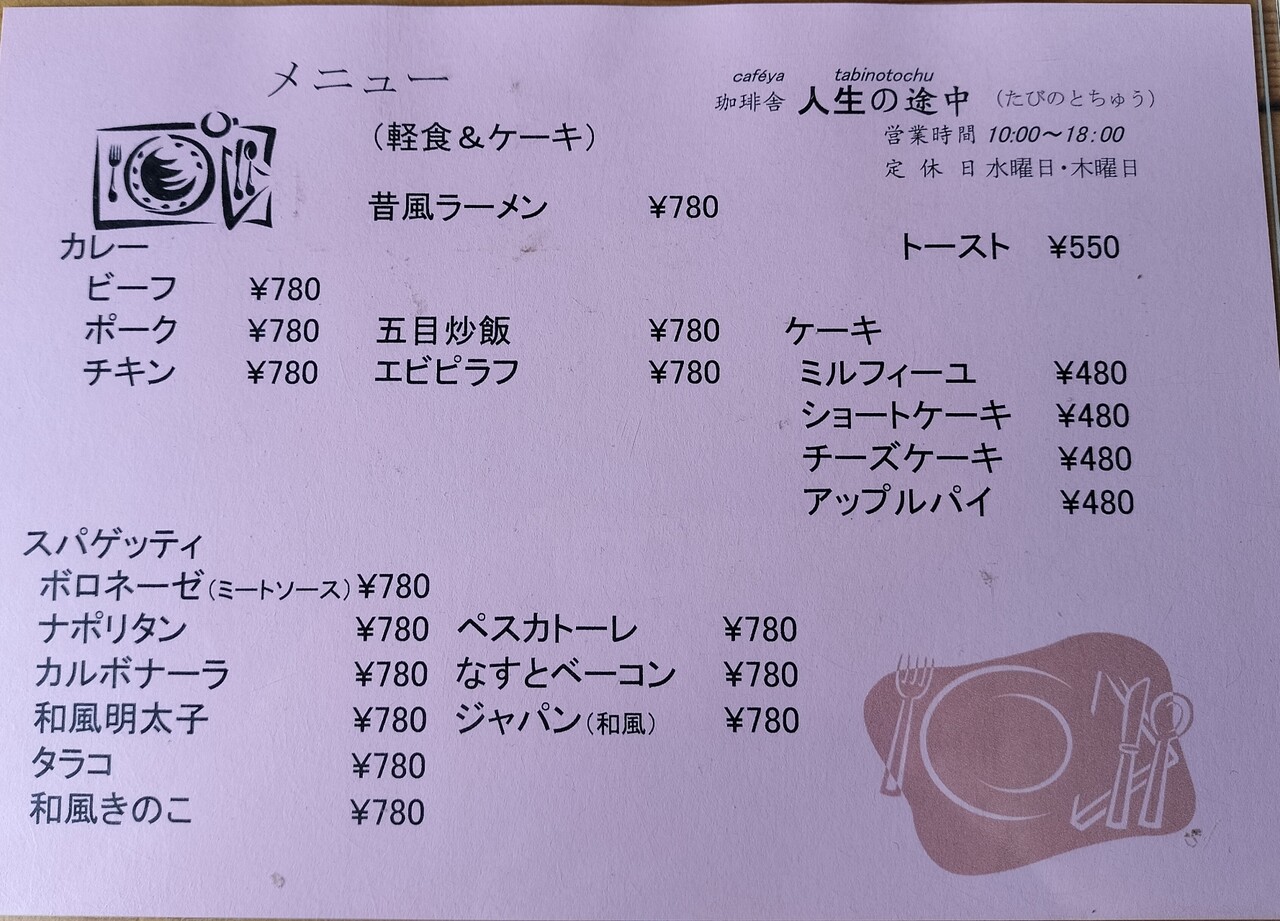 メニュー
caféya tabinotochu
珈琲舎 人生の途中 (たびのとちゅう)
(軽食&ケーキ)
営業時間 10:00~18:00
定休日 水曜日・木曜日
昔風ラーメン ¥780
カレー
ビーフ ¥780
ポーク ¥780
チキン ¥780
五目炒飯 ¥780
エビピラフ ¥780
トースト ¥550
ケーキ
ミルフィーユ ¥480
ショートケーキ ¥480
チーズケーキ ¥480
アップルパイ ¥480
スパゲッティ
ボロネーゼ(ミートソース) ¥780
ナポリタン ¥780
カルボナーラ ¥780
和風明太子 ¥780
タラコ ¥780
和風きのこ ¥780
ペスカトーレ ¥780
なすとベーコン ¥780
ジャパン(和風) ¥780